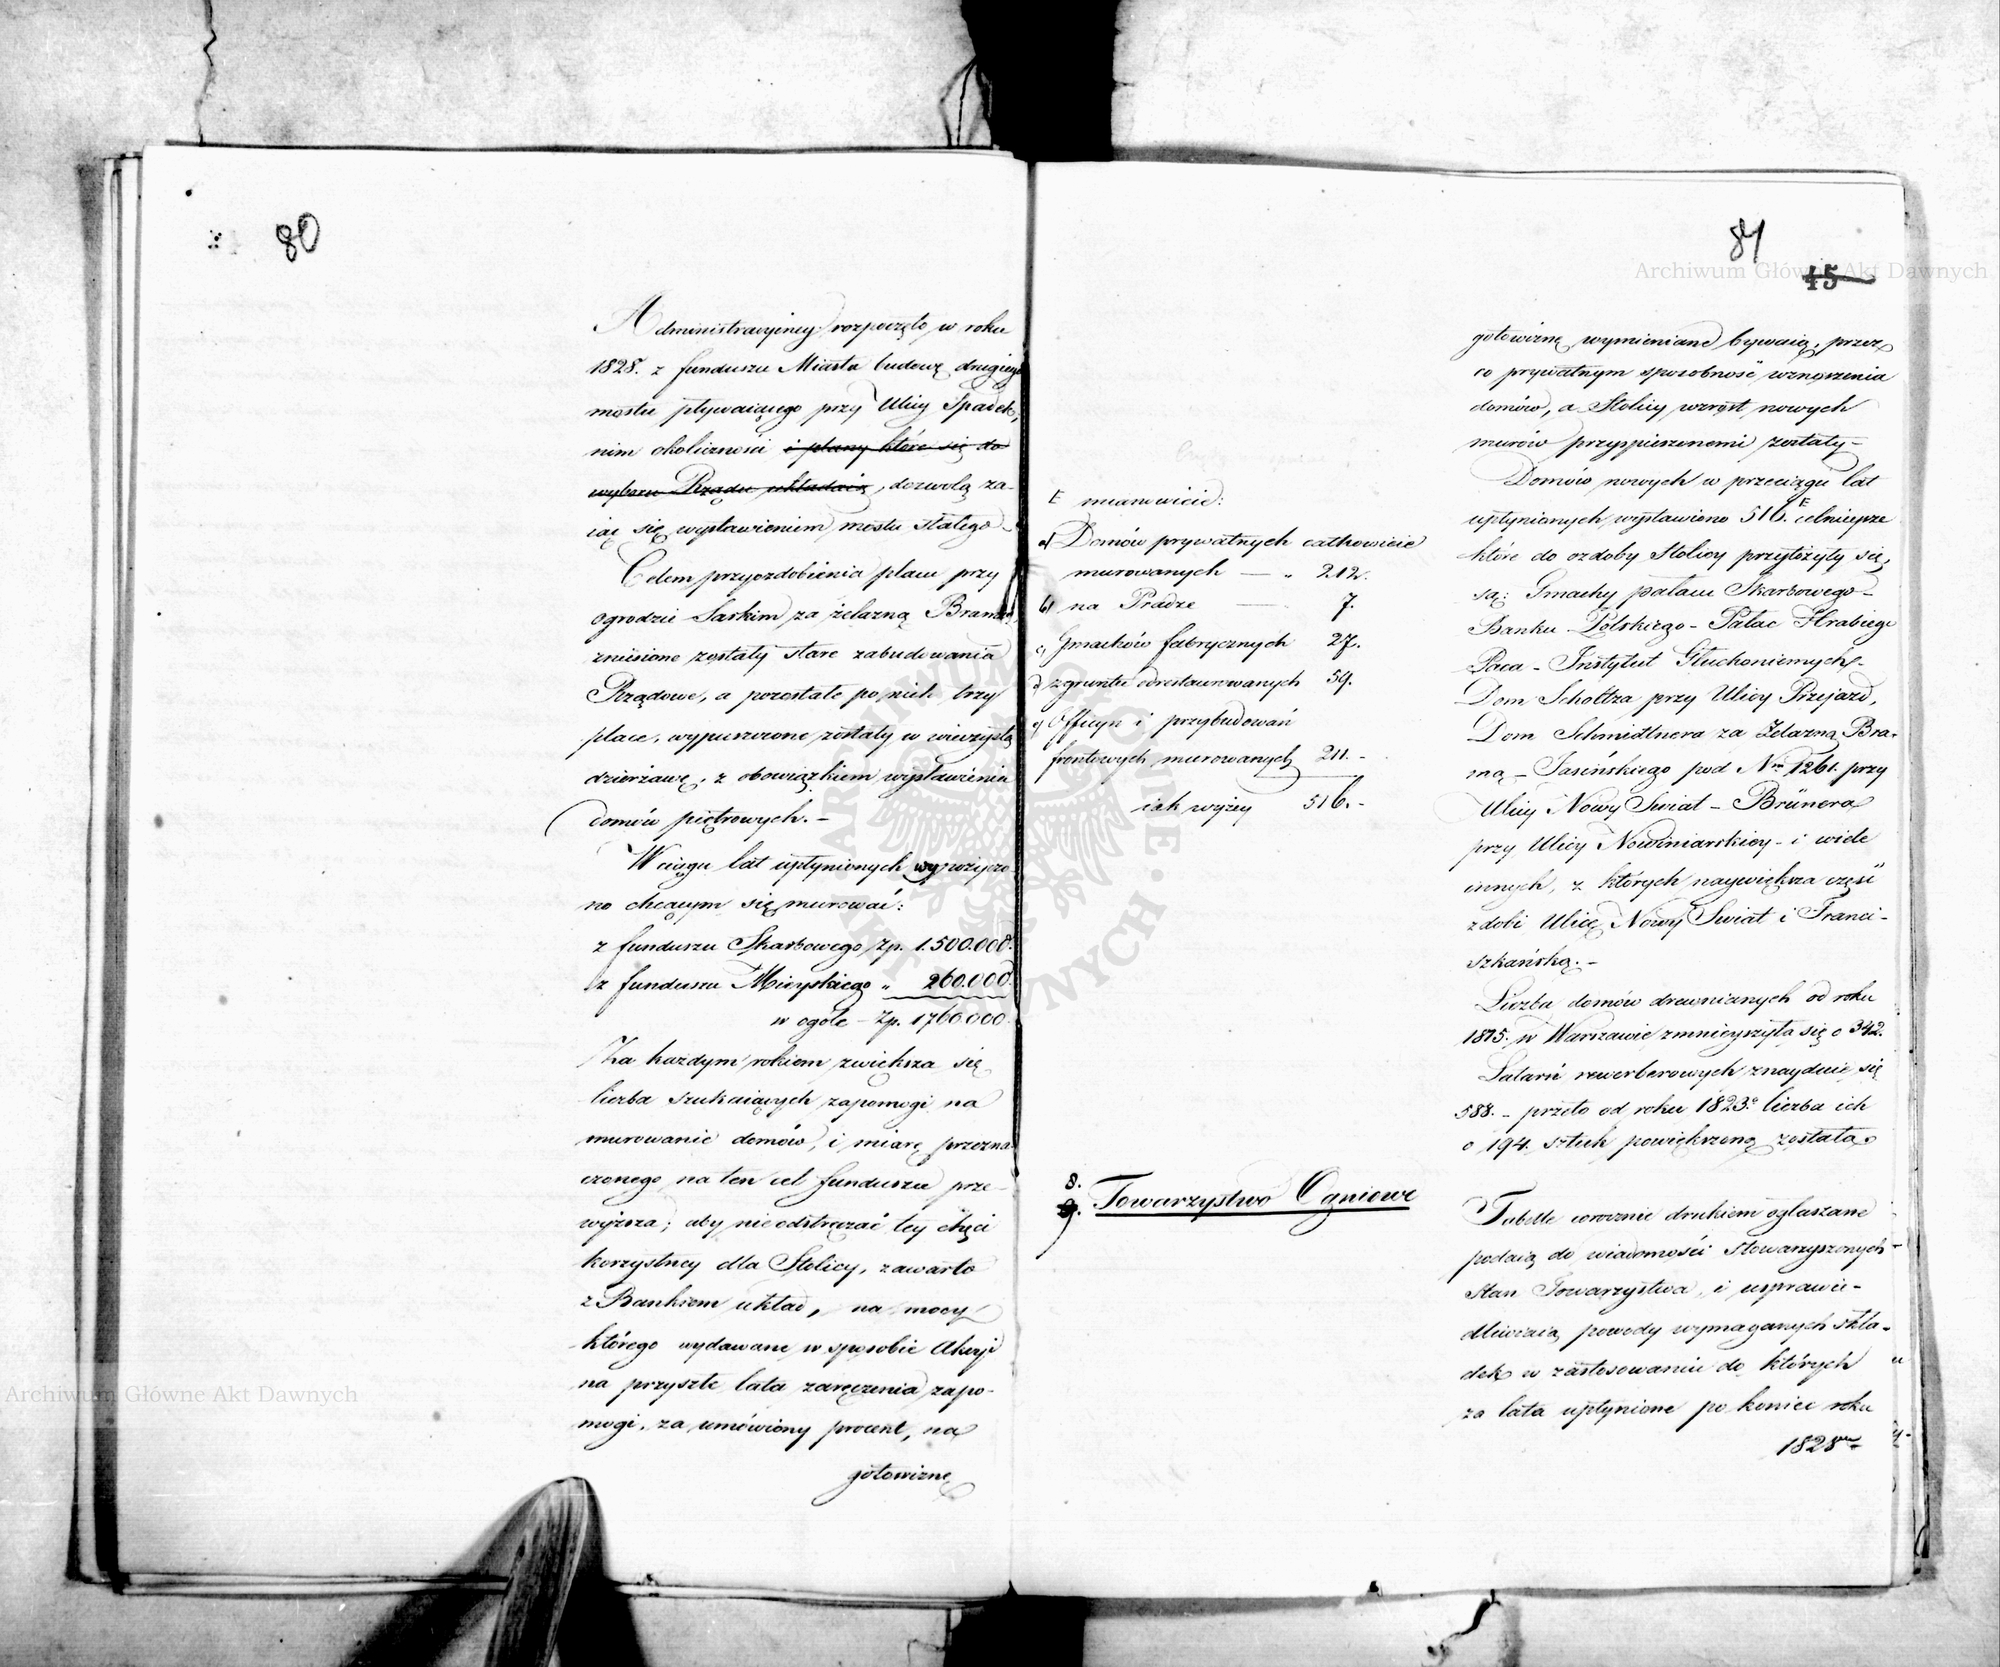 80
Administracyiney rozpoczęto w roku
1828. z funduszu Miasta budowę drugiego
mostu pływaiącego przy Ulicy Spadek,
nim okoliczności i plany które się do
wyboru Rządu układaią, dozwolą za-
iąć się wystawieniem mostu stałego.
Celem przyozdobienia placu przy
ogrodzie Saskim za żelazną Bramą,
zniesione zostały stare zabudowania
Rządowe, a pozostałe po nich trzy
place, wypuszczone zostały w wieczystą
dzierżawę, z obowiązkiem wystawienia
domów piętrowych. -
W ciągu lat upłynionych wypożyczo
no chcącym się murować:
z funduszu Skarbowego Zp. 1.500.000.
z funduszu Mieyskiego " 260.000.
w ogóle - Zp. 1760.000.
Za każdym rokiem zwiększa się
liczba szukaiących zapomogi na
murowanie domów, i miarę przezna
czonego na ten cel funduszu prze-
wyższa; aby nie odstręczać tey chęci
korzystney dla Stolicy, zawarto
z Bankiem układ, na mocy
którego wydawane w sposobie Akcyi
na przyszłe lata zaręczenia zapo-
mogi, za umówiony procent, na
gotowiznę
81
45
gotowiznę wymieniane bywaią, przez
co prywatnym sposobność wznoszenia
domów, a Stolicy wzrost nowych
murów przyspieszonemi zostały -
Domów nowych w przeciągu lat
upłynionych wystawiono 516. E celnieysze
które do ozdoby Stolicy przyłożyły się,
są: Gmachy pałacu Skarbowego -
Banku Polskiego - Pałac Hrabiego
Paca - Instytut Głuchoniemych -
Dom Scholtza przy Ulicy Przejazd,
Dom Schmidtnera za Żelazną Bra-
mą - Jasińskiego pod Nro 1261. przy
Ulicy Nowy Swiat - Brünera
przy Ulicy Nowiniarskiey - i wiele
innych, z których naywiększa część
zdobi Ulicę Nowy Swiat i Franci-
szkańską. -
Liczba domów drewnianych od roku
1815. w Warszawie zmnieyszyła się o 342.
Latarń rewerberowych znayduie się
588. - przeto od roku 1823. liczba ich
o 194. sztuk powiększoną została.
E mianowicie:
a) Domów prywatnych całkowicie
murowanych — " 212.
b) na Pradze — 7.
c) Gmachów fabrycznych 27.
d) z gruntu odrestaurowanych 59.
e) Officyn i przybudowań
frontowych murowanych 211. -
iak wyżey 516. -
8.
9. Towarzystwo Ogniowe
Tabelle corocznie drukiem ogłaszane
podaią do wiadomości Stowarzyszonych
Stan Towarzystwa, i usprawie-
dliwiaią powody wymaganych skła-
dek w zastosowaniu do których
za lata upłynione po koniec roku
1828.
Archiwum Główne Akt Dawnych
Archiwum Główne Akt Dawnych